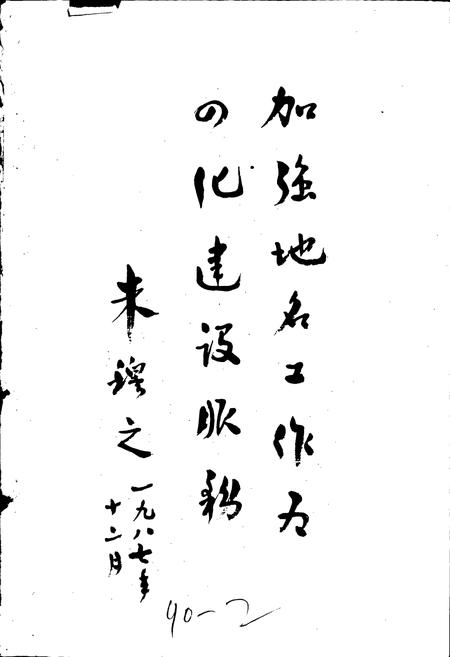 加強地名工作为
四化建设服務
朱穆之
一九八七年
十二月
90-2